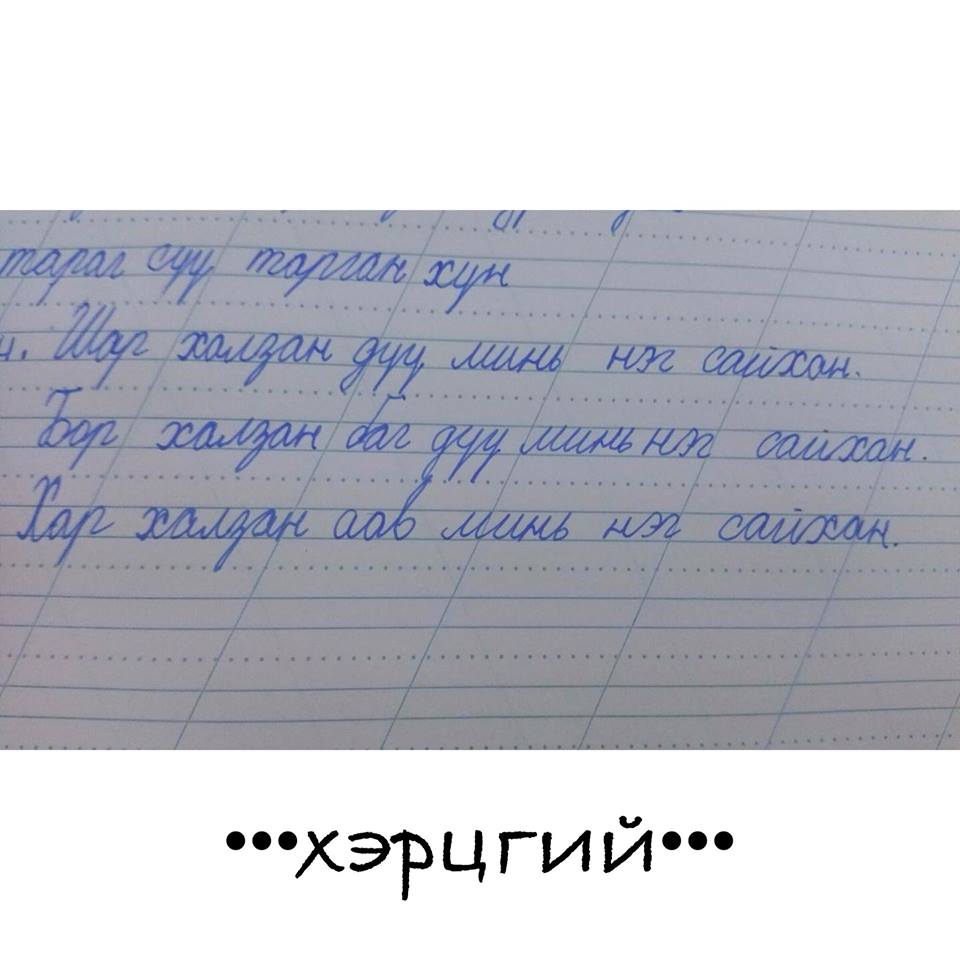 тараг сүү тарган хүн
4. Шар халзан дүү минь нэг сайхан.
Бор халзан баг дүү минь нэг сайхан.
Хар халзан аав минь нэг сайхан.
•••хэрцгий•••